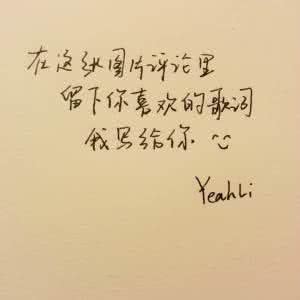 在这张图片评论里
留下你喜欢的歌词
我写给你.
YeahLi